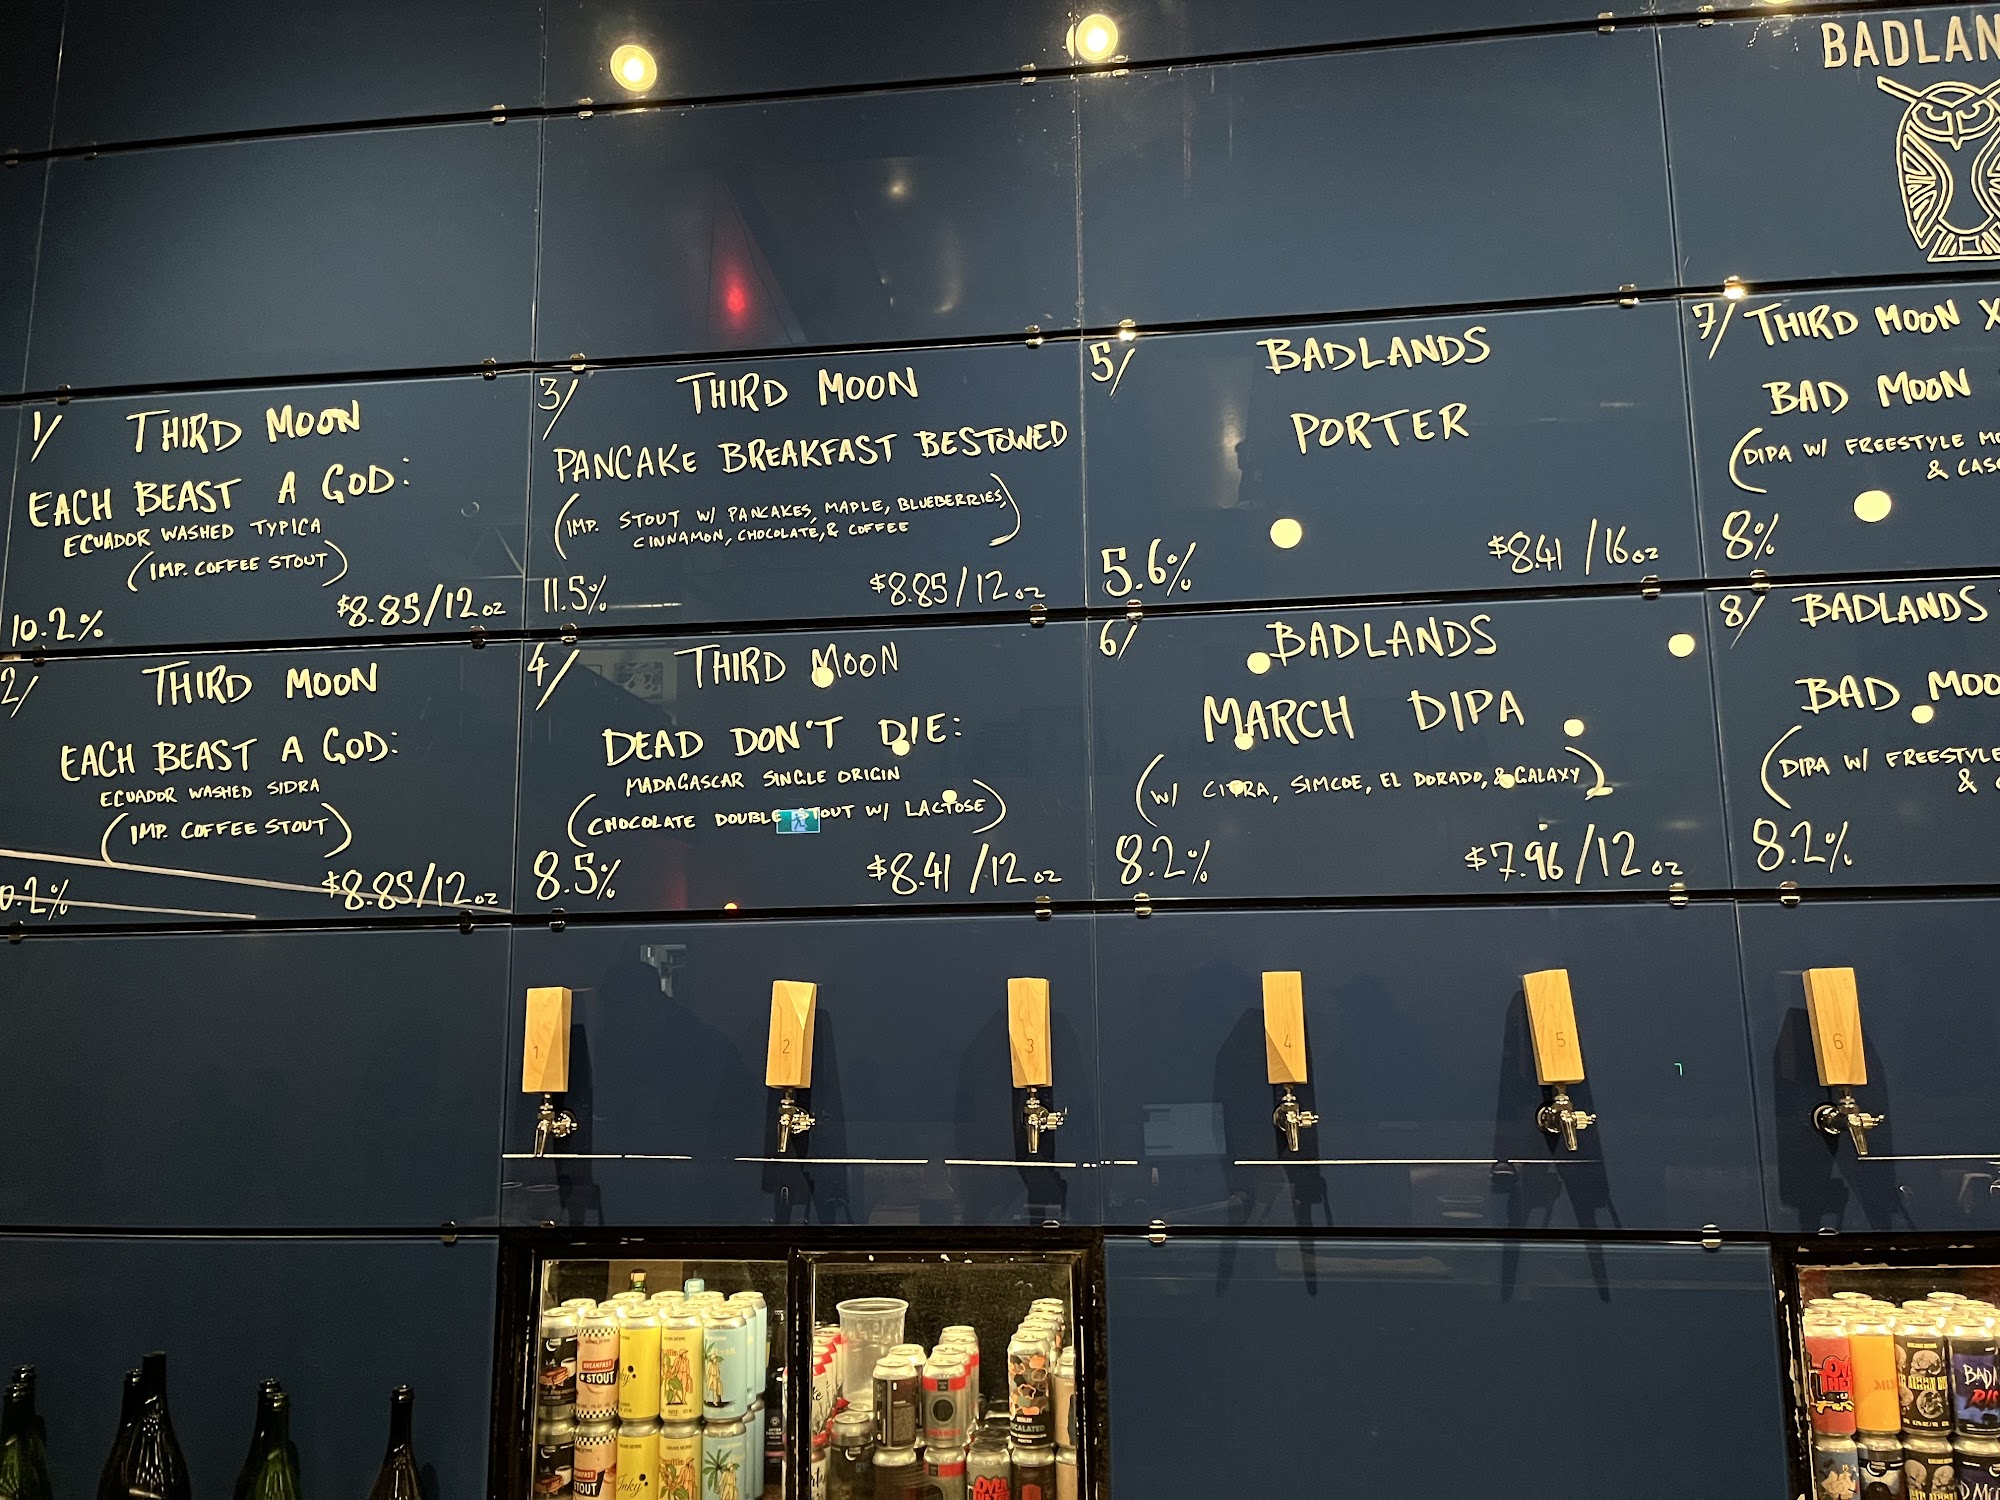 BADLAN
1/ THIRD MOON
EACH BEAST A GOD:
ECUADOR WASHED TYPICA
(IMP. COFFEE STOUT)
10.2% $8.85/12oz
2/ THIRD MOON
EACH BEAST A GOD:
ECUADOR WASHED SIDRA
(IMP. COFFEE STOUT)
0.2% $8.85/12oz
3/ THIRD MOON
PANCAKE BREAKFAST BESTOWED
(IMP. STOUT W/ PANCAKES, MAPLE, BLUEBERRIES,
CINNAMON, CHOCOLATE, & COFFEE)
11.5% $8.85/12oz
4/ THIRD MOON
DEAD DON'T DIE:
MADAGASCAR SINGLE ORIGIN
(CHOCOLATE DOUBLE STOUT W/ LACTOSE)
8.5% $8.41/12oz
5/ BADLANDS
PORTER
5.6% $8.41/16oz
6/ BADLANDS
MARCH DIPA
(W/ CITRA, SIMCOE, EL DORADO, & GALAXY)
8.2% $7.96/12oz
7/ THIRD MOON X
BAD MOON
(DIPA W/ FREESTYLE MO
& CAS
8%
8/ BADLANDS
BAD MOO
(DIPA W/ FREESTYLE
&
8.2%
1 2 3 4 5 6
BREAKFAST
STOUT
STOUT